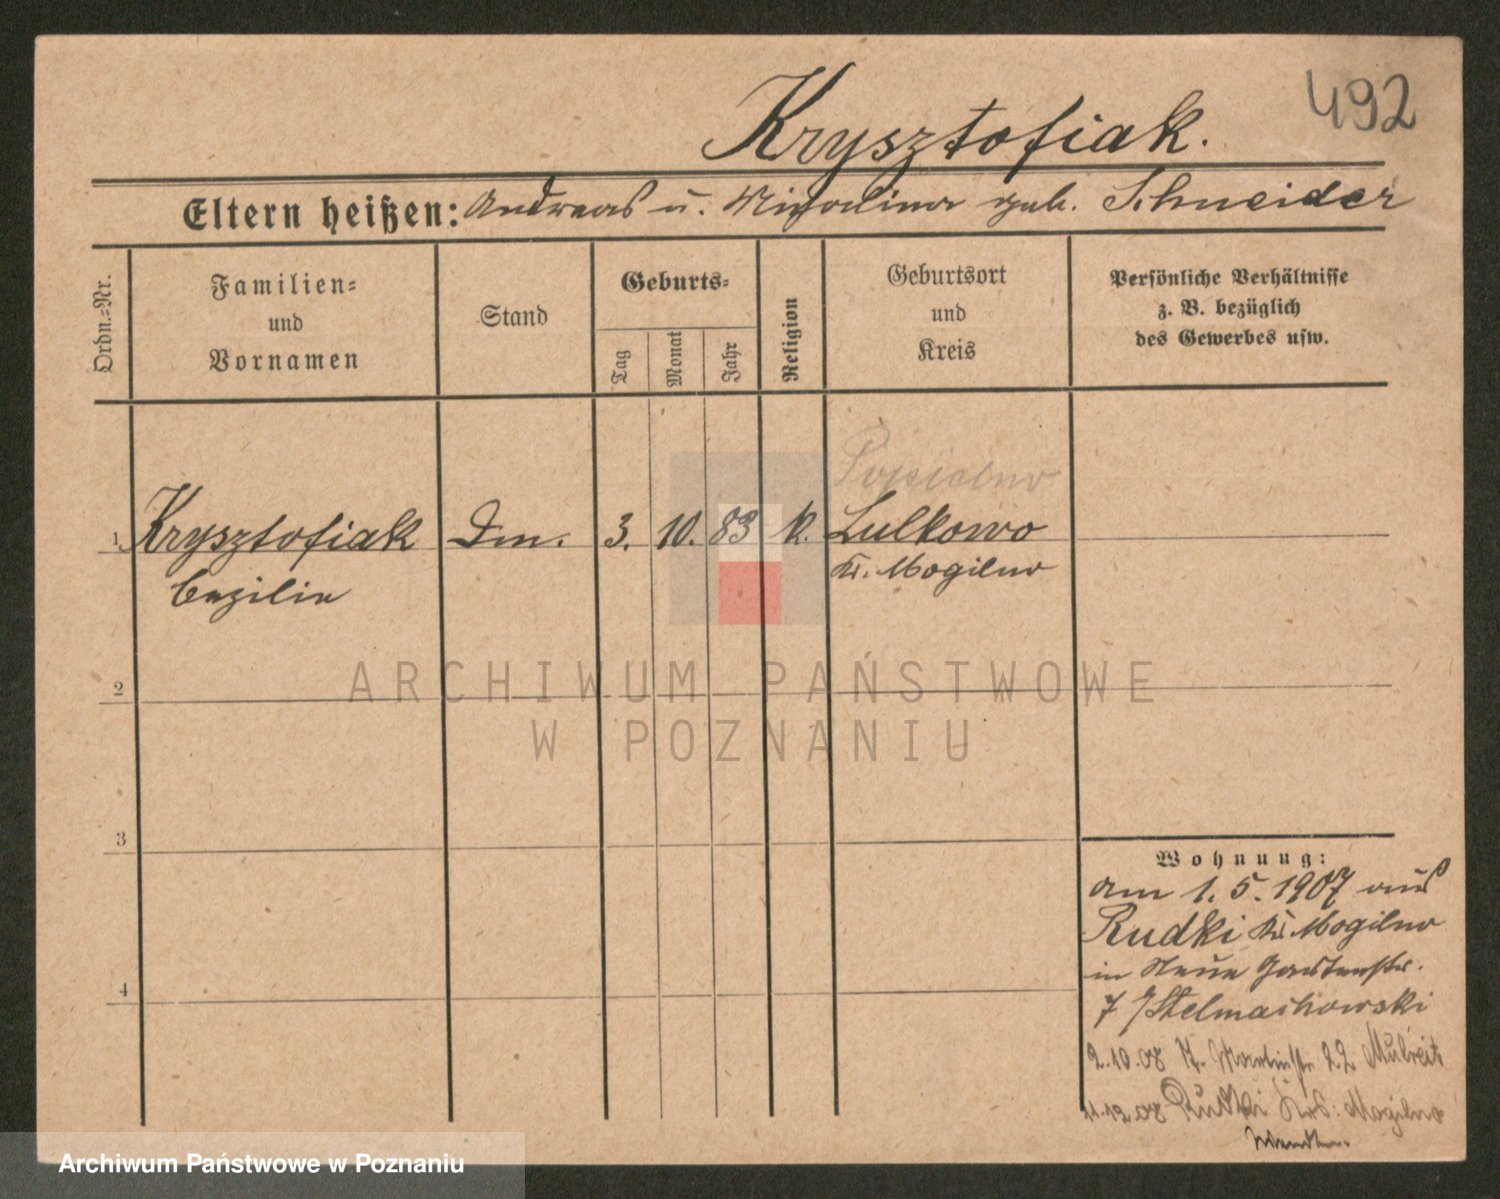 492
Krysztofiak.
Eltern heißen: Andreas u. geb. Schneider
Ordn.=Nr.
Familien=
und
Vornamen
Stand
Geburts=
Tag
Monat
Jahr
Religion
Geburtsort
und
Kreis
Persönliche Verhältnisse
z. B. bezüglich
des Gewerbes usw.
1 Krysztofiak Dm. 3. 10. 83 k. Lulkowo
Cezilia Kr. Mogilno
2
3
4
ARCHIWUM PAŃSTWOWE
W POZNANIU
Wohnung:
am 1. 5. 1907 aus
Rudki Kr. Mogilno
in Neue Gartenstr.
7 /Stelmachowski
2.10.08 Martinstr 22
11.12.08 Rudki Krs: Mogilno
Archiwum Państwowe w Poznaniu